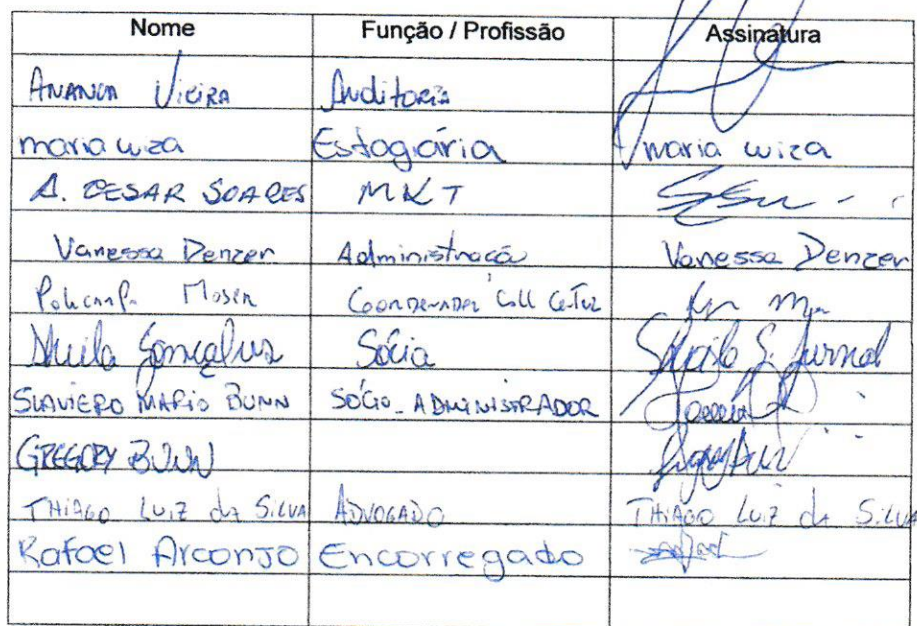 Nome Função / Profissão Assinatura
Vieira Auditoria
maria wiza Estagiária maria wiza
A. CESAR SOARES MKT
Vanessa Denzer Administração Vanessa Denzer
Policarpo Coordenador Call Center
Sheila Gonçalves Sócia
SLAVIERO MARIO BUNN SÓCIO_ADMINISTRADOR
GREGORY BUNN
THIAGO LUIZ da SILVA ADVOGADO THIAGO LUIZ da SILVA
Rafael Arconjo Encorregado